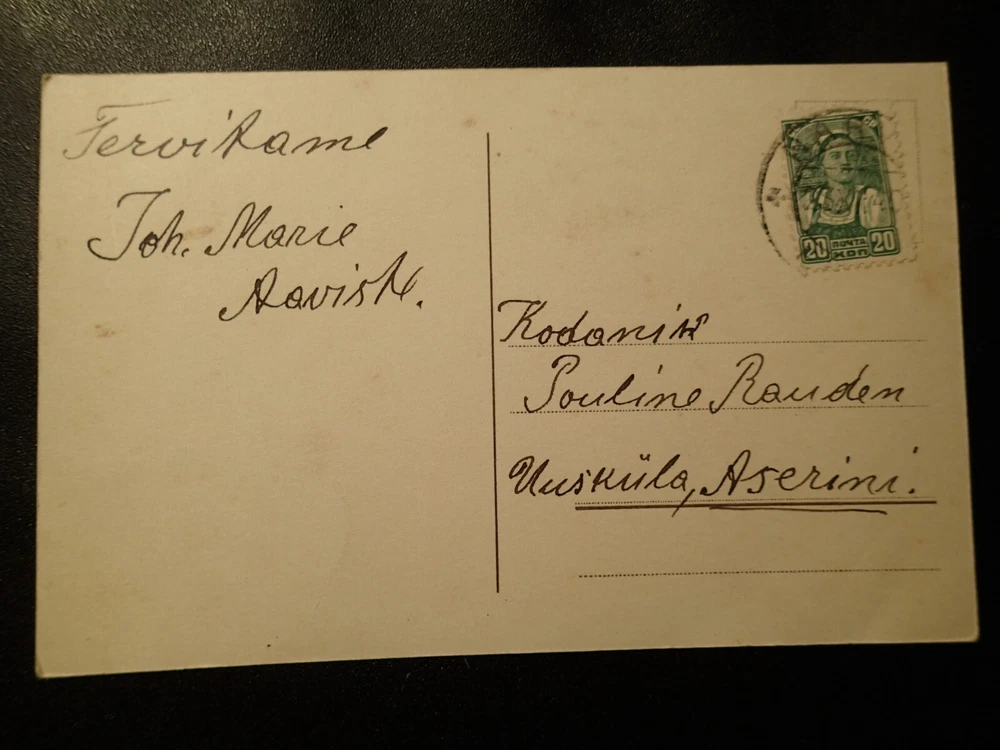 Tervitame
Joh. Marie
Aavisk.
20 ПОЧТА 20
КОП
Kodanik
Pouline Rauden
Uusküla, Aserini.